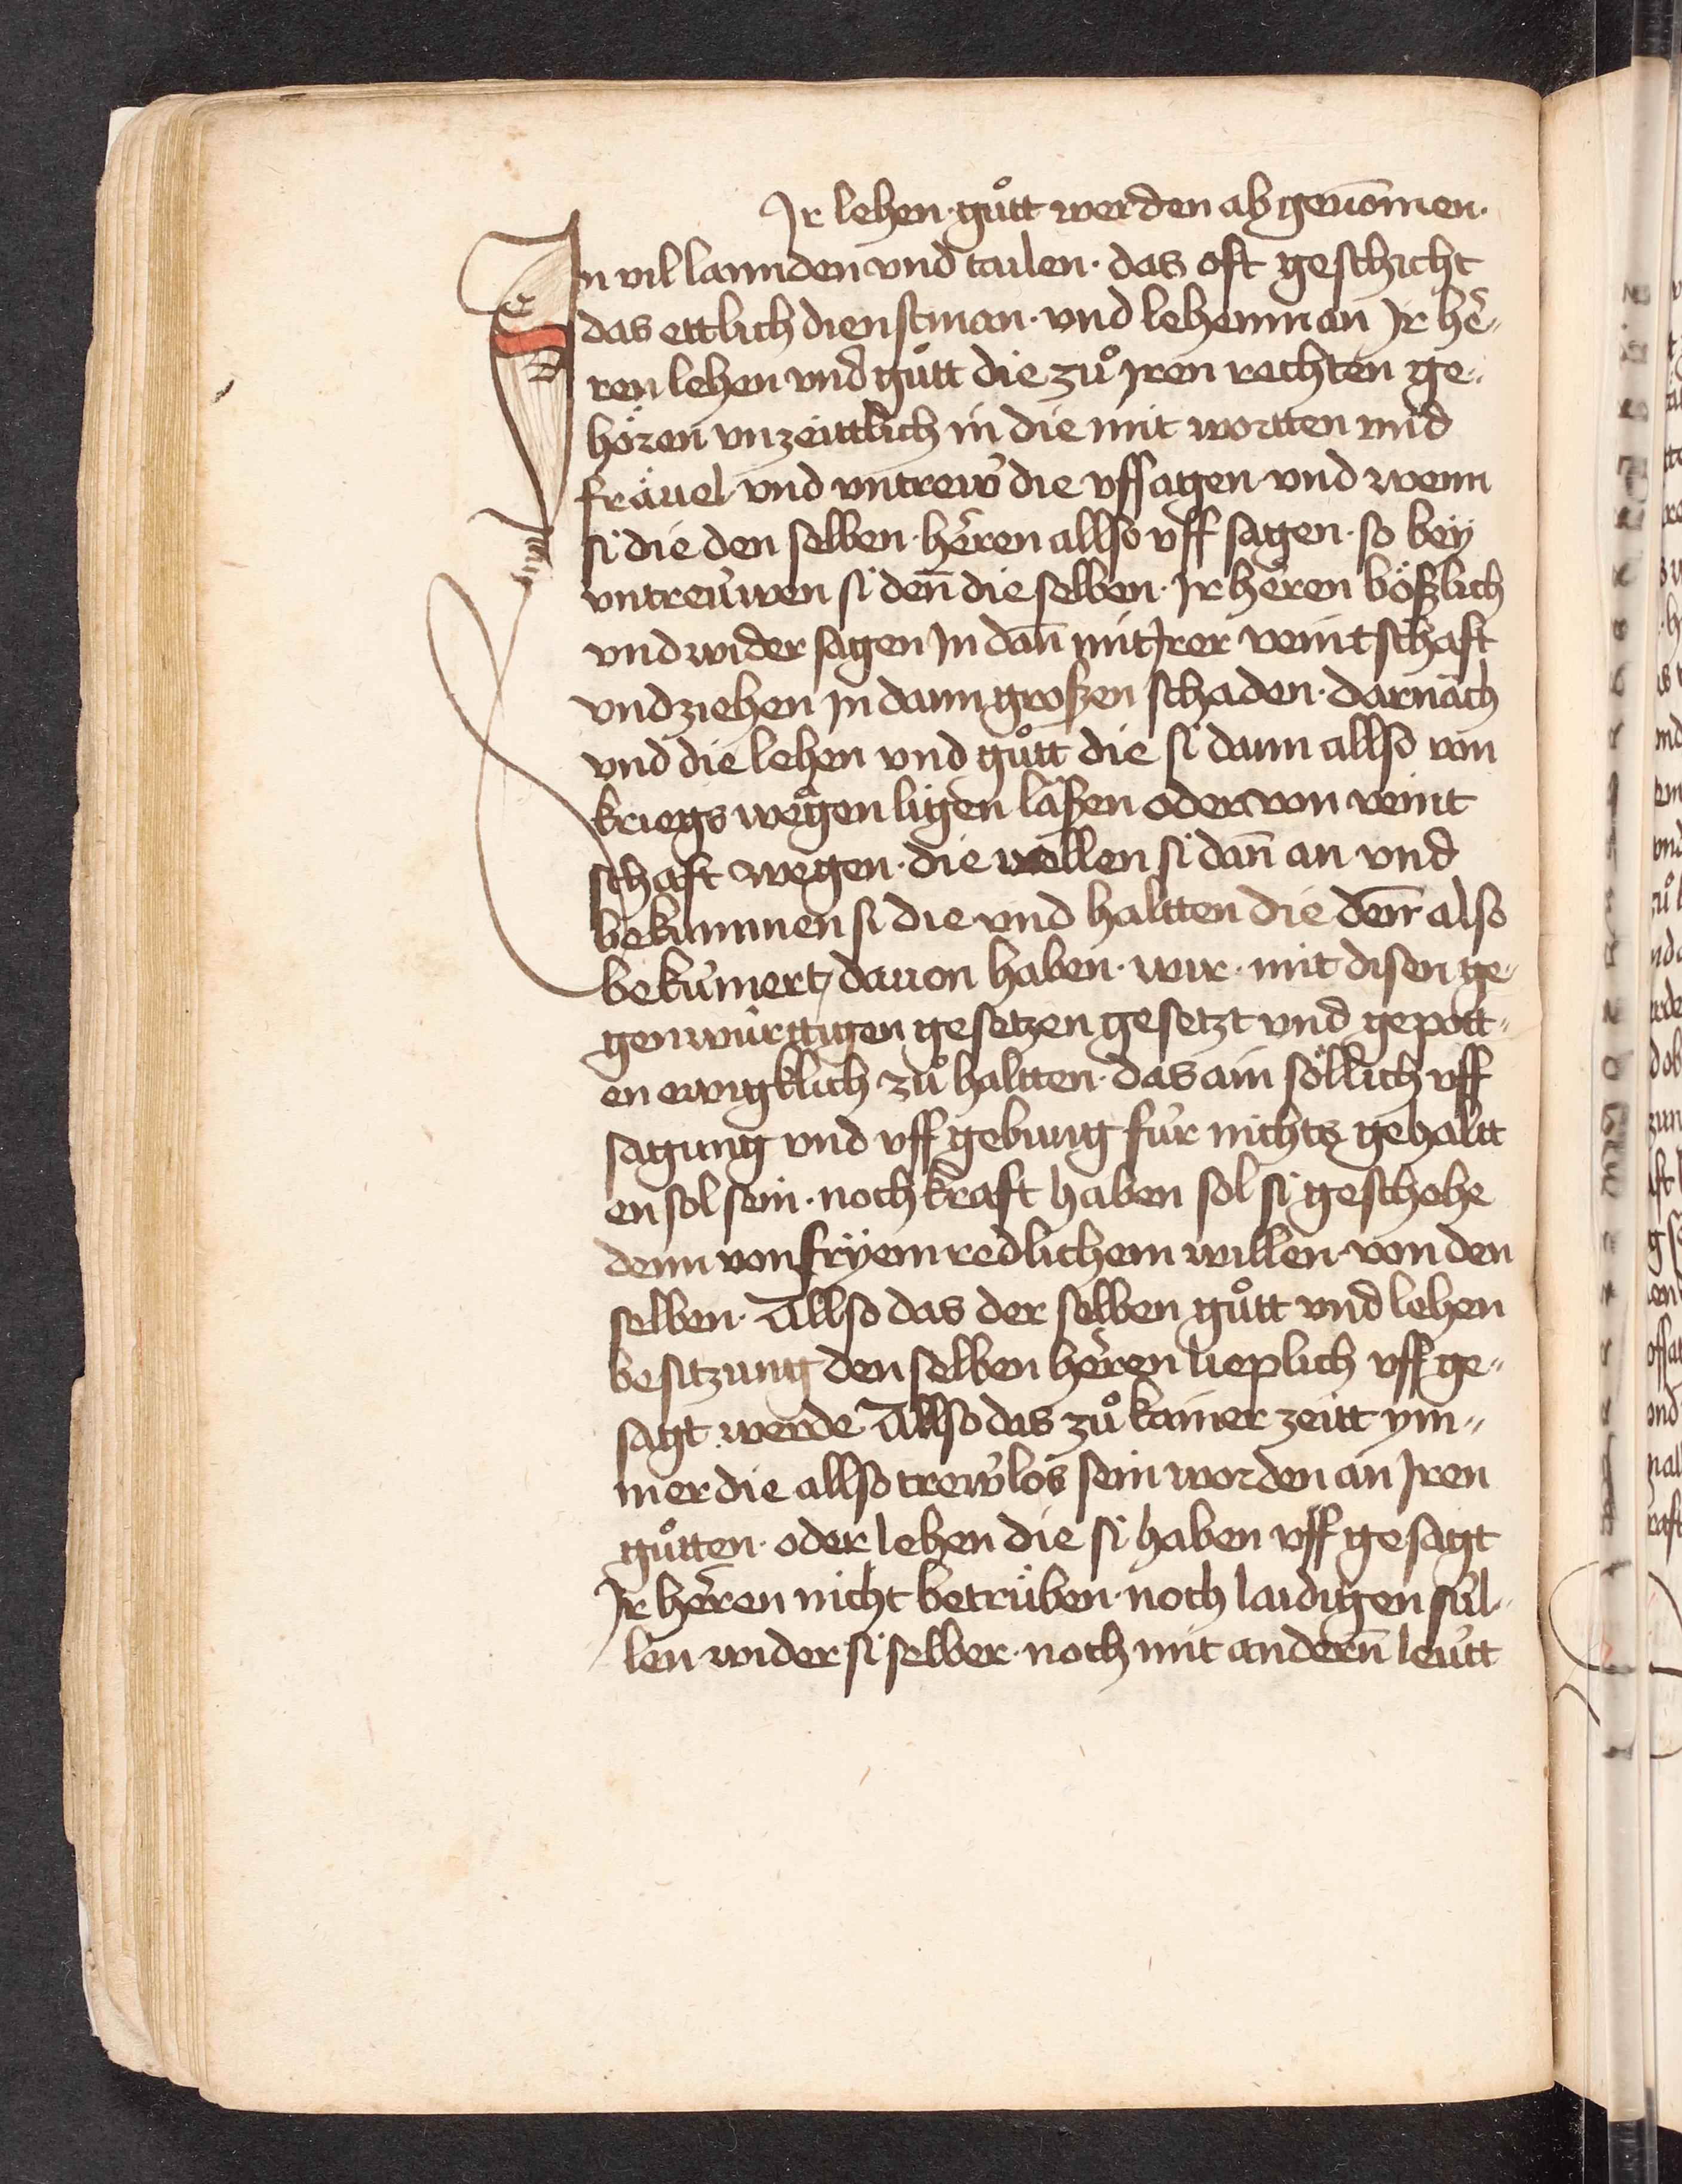 Jr lehen · gůtt werden ab genōmen ·
Jn vil lannden vnd tailen · das oft geschicht
das ettlich dienstman · vnd lehenman Jr he͂„
ren lehen vnd gůtt die zů jren rechten ge„
hören vnzeittlich in die mit wortten vnd
fräuel vnd vntrew̃ die vffsagen vnd wenn
si die den selben · he͂ren allso vff sagen · so bey
vntreüwen si den̄ die selben · Jr he͂ren bößlich
vnd wider sagen Jn dan̄ mit Jrer veintschaft
vnd ziehen jn dann großen schaden · darnach
vnd die lehen vnd gůtt die si dann allso von
kriegs wegen ligen laßen oder von veint
schaft wegen · die wöllen si dan̄ an vnd
bekummen si die vnd haltten die den̄ also
bekümert / dauon haben · wir · mit disen ge„
genwürttigen gesetzen gesetzt vnd gepott„
en ewigklich zů haltten · das ain söllich vff
sagung vnd vff gebung für nichts gehaltt
en sol sein · noch kraft haben sol si geschehe
denn von fryem redlichem willen · von den
selben · Allso das der selben gůtt vnd lehen
besitzung den selben he͂ren lieplich vff ge„
sagt werde Allso das zů kainer zeitt ym„
mer die allso trew̃los sein worden an Jren
gůtten · oder lehen die si haben vff gesagt
Jr he͂ren nicht betrüben · noch laidigen sül„
len wider si selber · noch mit andern̄ leütt